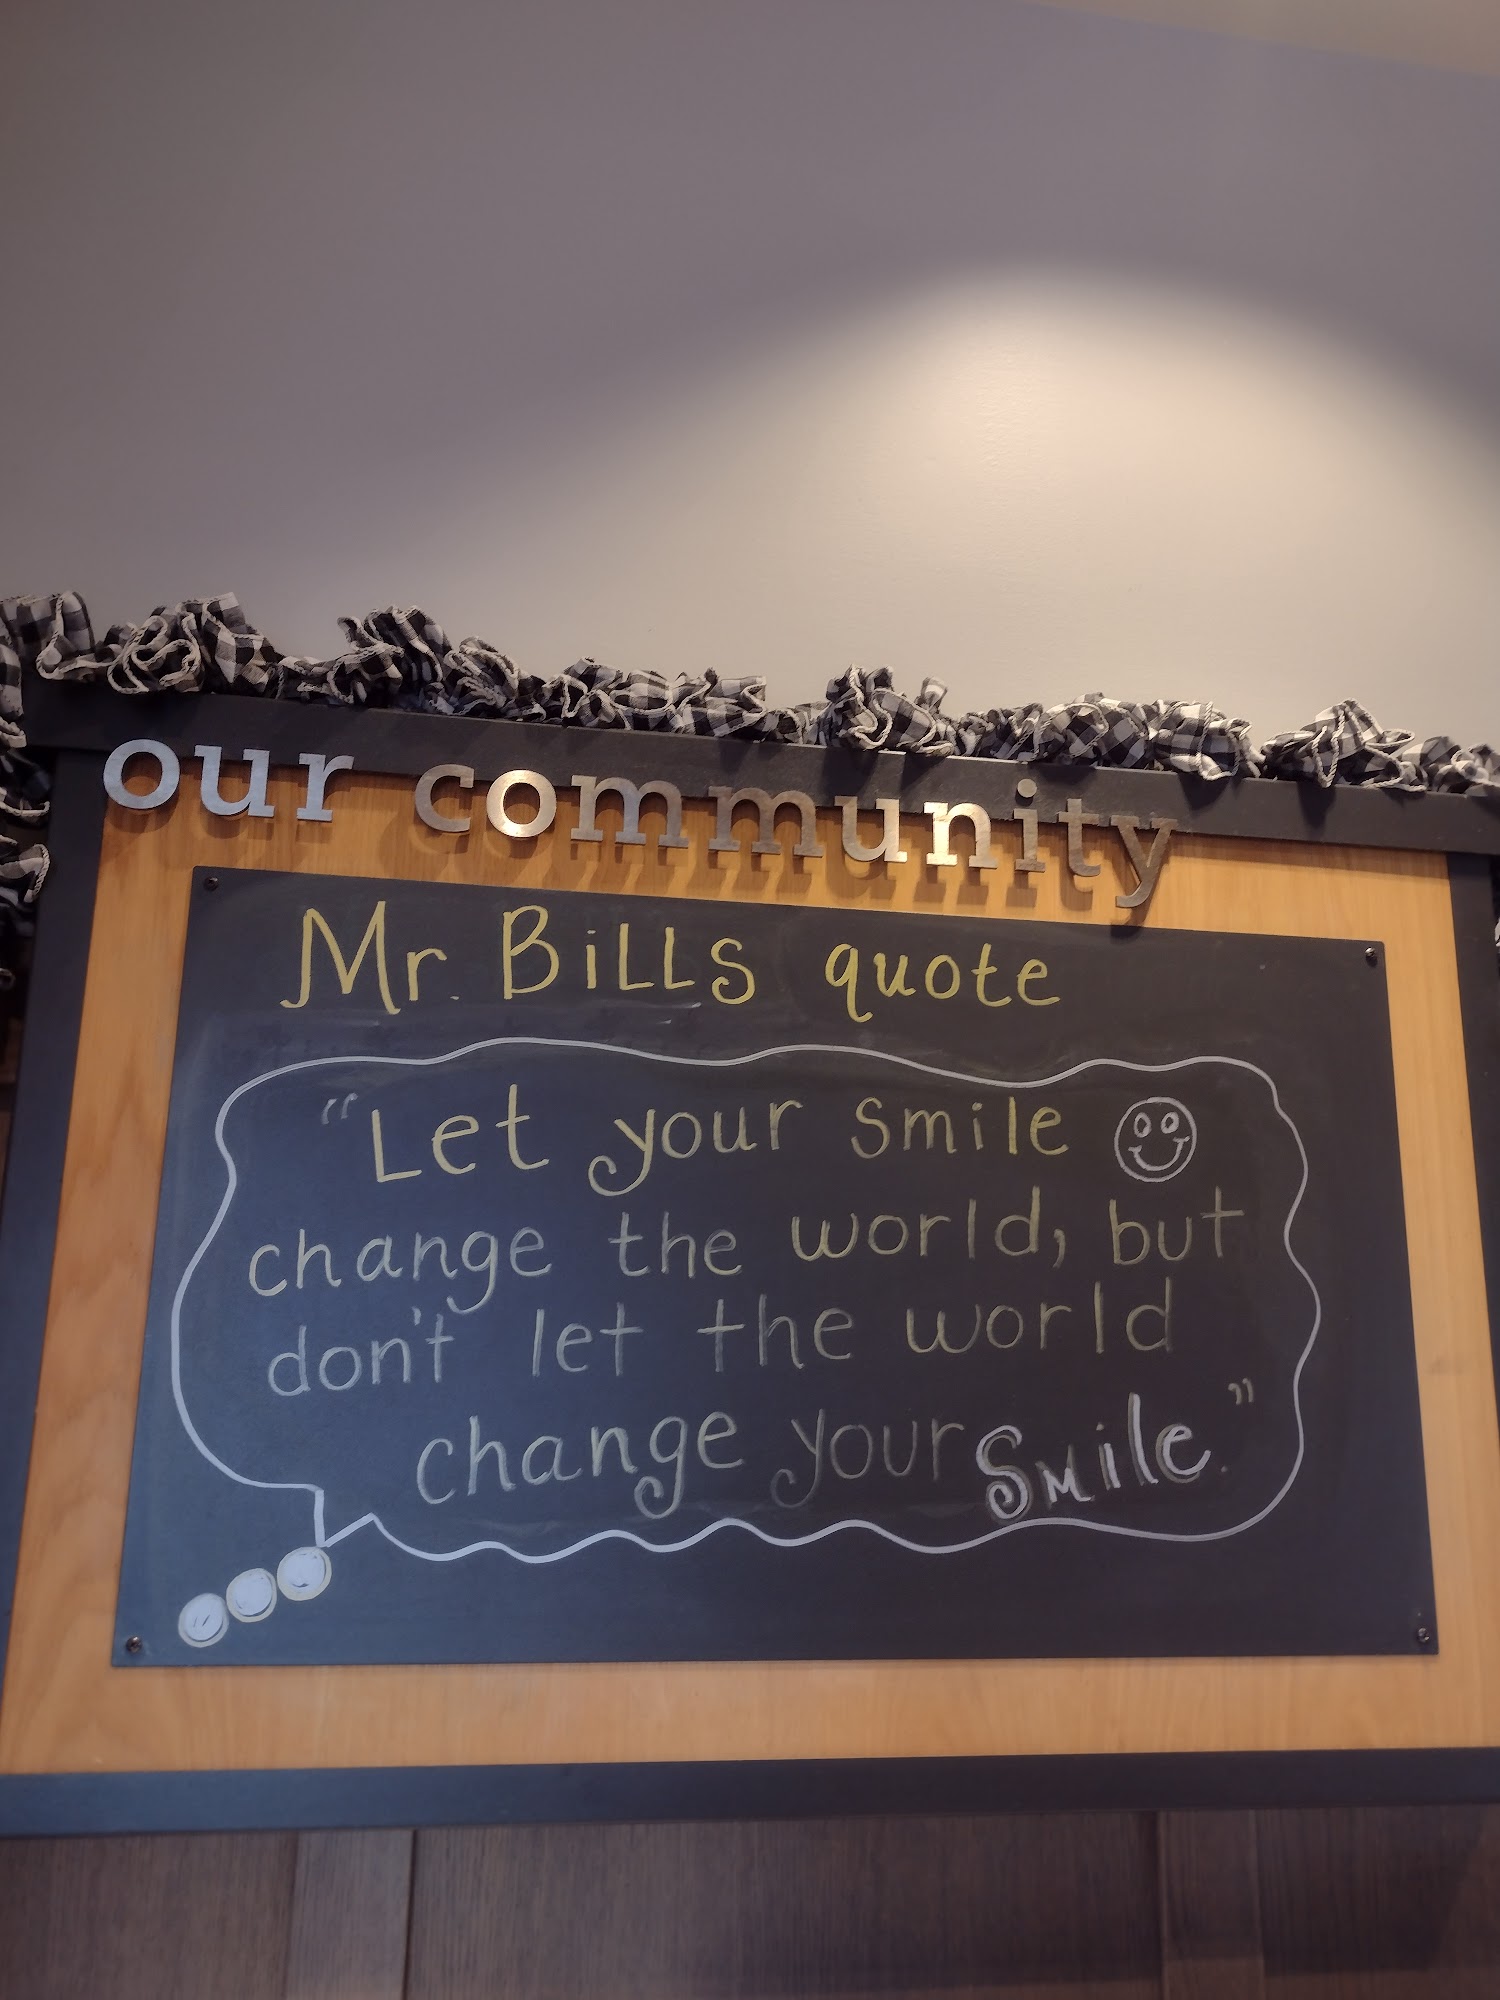 our community
Mr. BiLLS quote
"Let your smile
change the world, but
don't let the world
change your Smile."